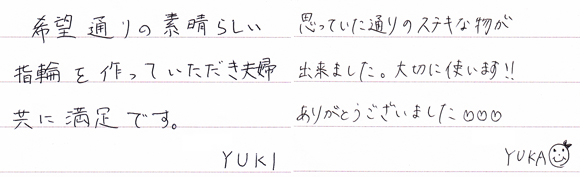 希望通りの素晴らしい
指輪を作っていただき夫婦
共に満足です。
YUKI
思っていた通りのステキな物が
出来ました。大切に使います!!
ありがとうございました○○○
YUKA